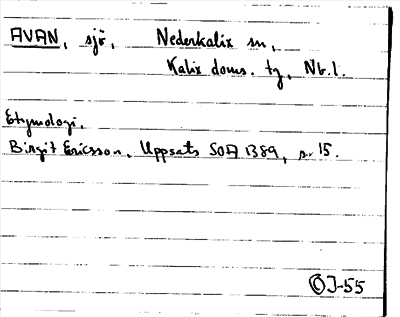 AVAN, sjö, Nederkalix sn,
Kalix doms. tg, Nb.l.
Etymologi.
Birgit Ericsson, Uppsats SOA 1389, s. 15.
OJ-55